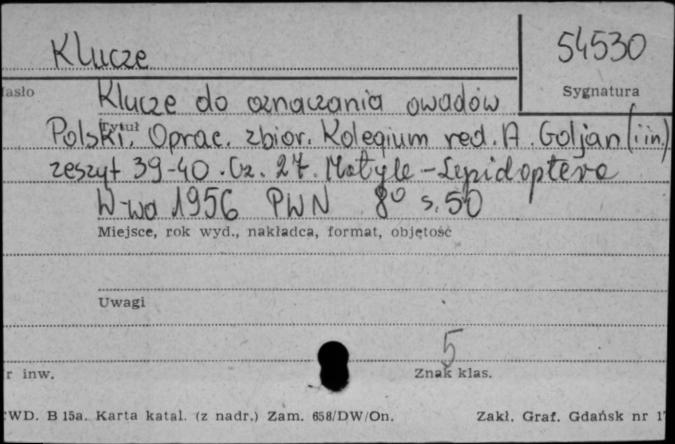 Klucze
54530
asło
Sygnatura
Klucze do oznaczania owadów
Tytuł
Polski. Oprac. zbior. Kolegium red. A. Goljan (i in.)
zeszyt 39-40. Cz. 27. Motyle - Lepidoptera
W-wa 1956 PWN 8° s. 50
Miejsce, rok wyd., nakładca, format, objętość
Uwagi
5
r inw.
Znak klas.
WD. B 15a. Karta katal. (z nadr.) Zam. 658/DW/On.
Zakł. Graf. Gdańsk nr 1